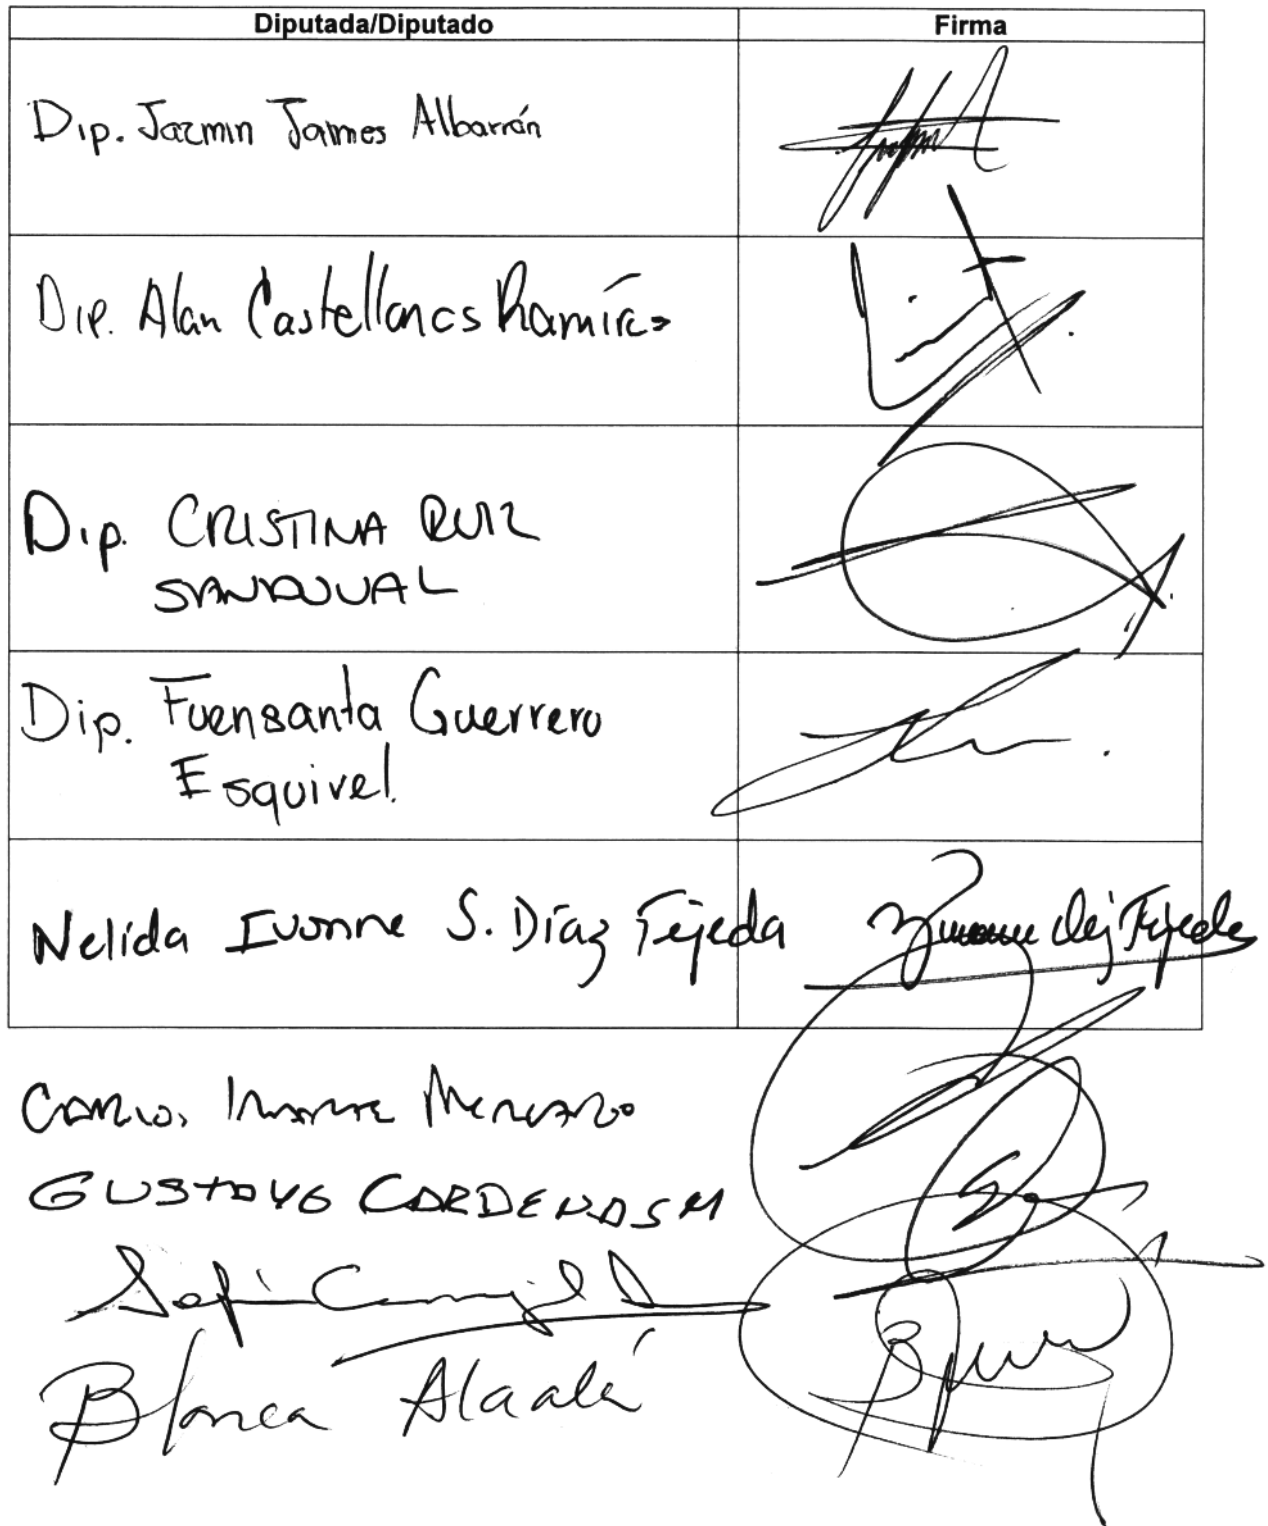 Diputada/Diputado Firma
Dip. Jazmin Jaimes Albarrán
Dip. Alan Castellanos Ramírez
Dip. CRISTINA RUIZ
SANDOVAL
Dip. Fuensanta Guerrero
Esquivel.
Nelida Ivonne S. Díaz Tejeda Díaz Tejeda
Carlos Iriarte Mercado
GUSTAVO CARDENAS M
Sofía Carvajal
Blanca Alcalá